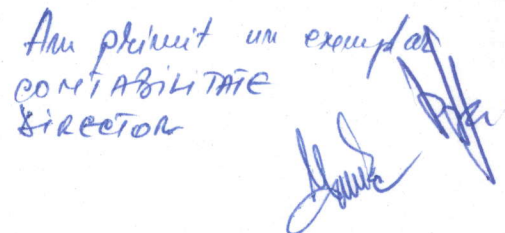 Am primit un exemplar
CONTABILITATE
DIRECTOR